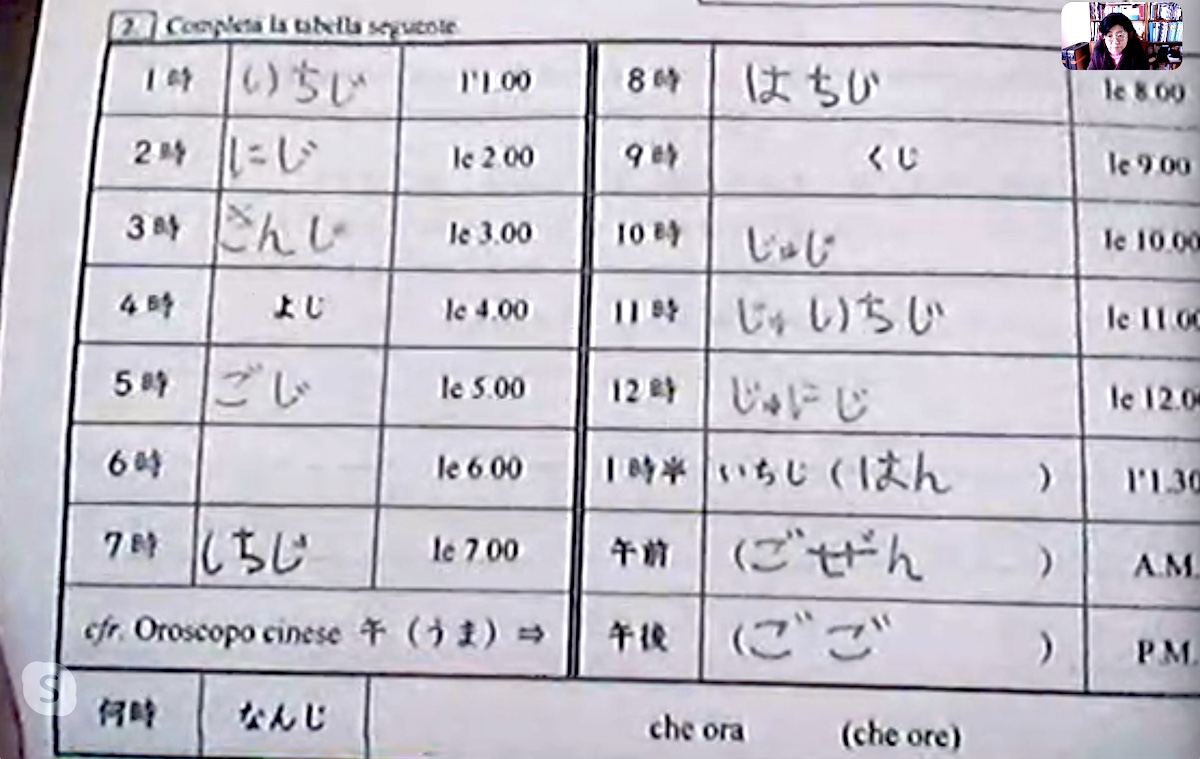 2. Completa la tabella seguente.
1時 いちじ l'1.00 8時 はちじ le 8.00
2時 にじ le 2.00 9時 くじ le 9.00
3時 さんじ le 3.00 10時 じゅじ le 10.00
4時 よじ le 4.00 11時 じゅいちじ le 11.00
5時 ごじ le 5.00 12時 じゅにじ le 12.0
6時 le 6.00 1時半 いちじ (はん) l'1.30
7時 しちじ le 7.00 午前 (ごぜん) A.M.
cfr. Oroscopo cinese 午 (うま) ⇒ 午後 (ごご) P.M.
何時 なんじ che ora (che ore)
S